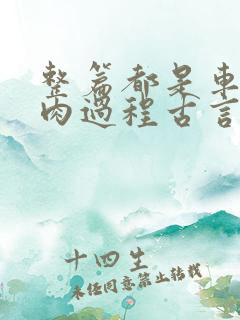 整篇都是車
肉過程古言
十四生
未经同意禁止转载